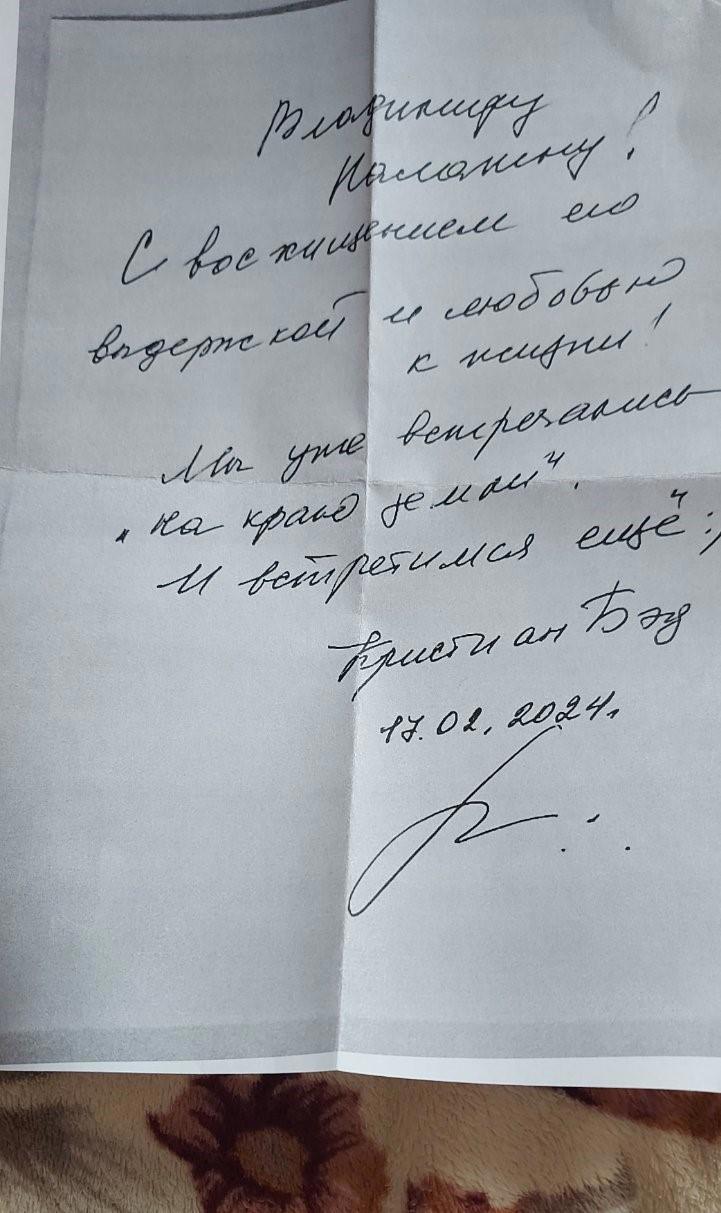 Владимиру
!
С восхищением его
выдержкой и любовью
к жизни!
Мы уже встречались
„на краю земли“.
И встретимся ещё :)
Кристиан Бэд
17.02.2024г.